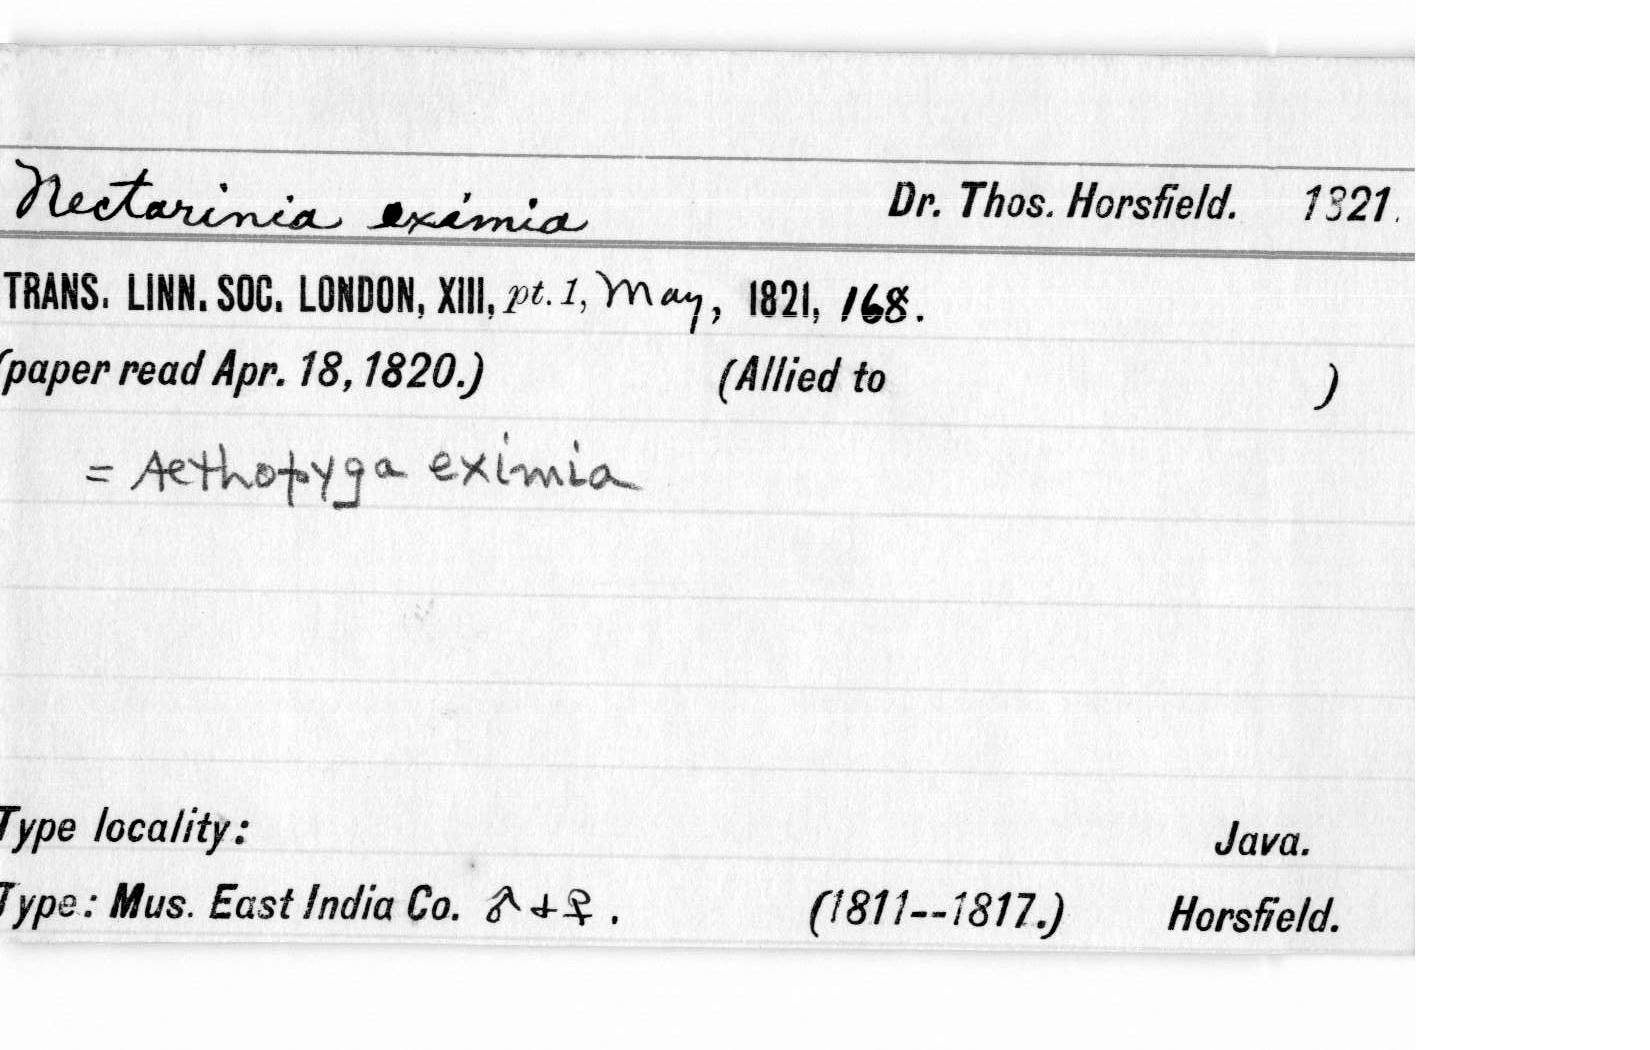 Nectarinia eximia Dr. Thos. Horsfield. 1821.
TRANS. LINN. SOC. LONDON, XIII, pt. 1, May, 1821, 168.
(paper read Apr. 18, 1820.) (Allied to )
= Aethopyga eximia
Type locality: Java.
Type: Mus. East India Co. ♂ + ♀. (1811--1817.) Horsfield.